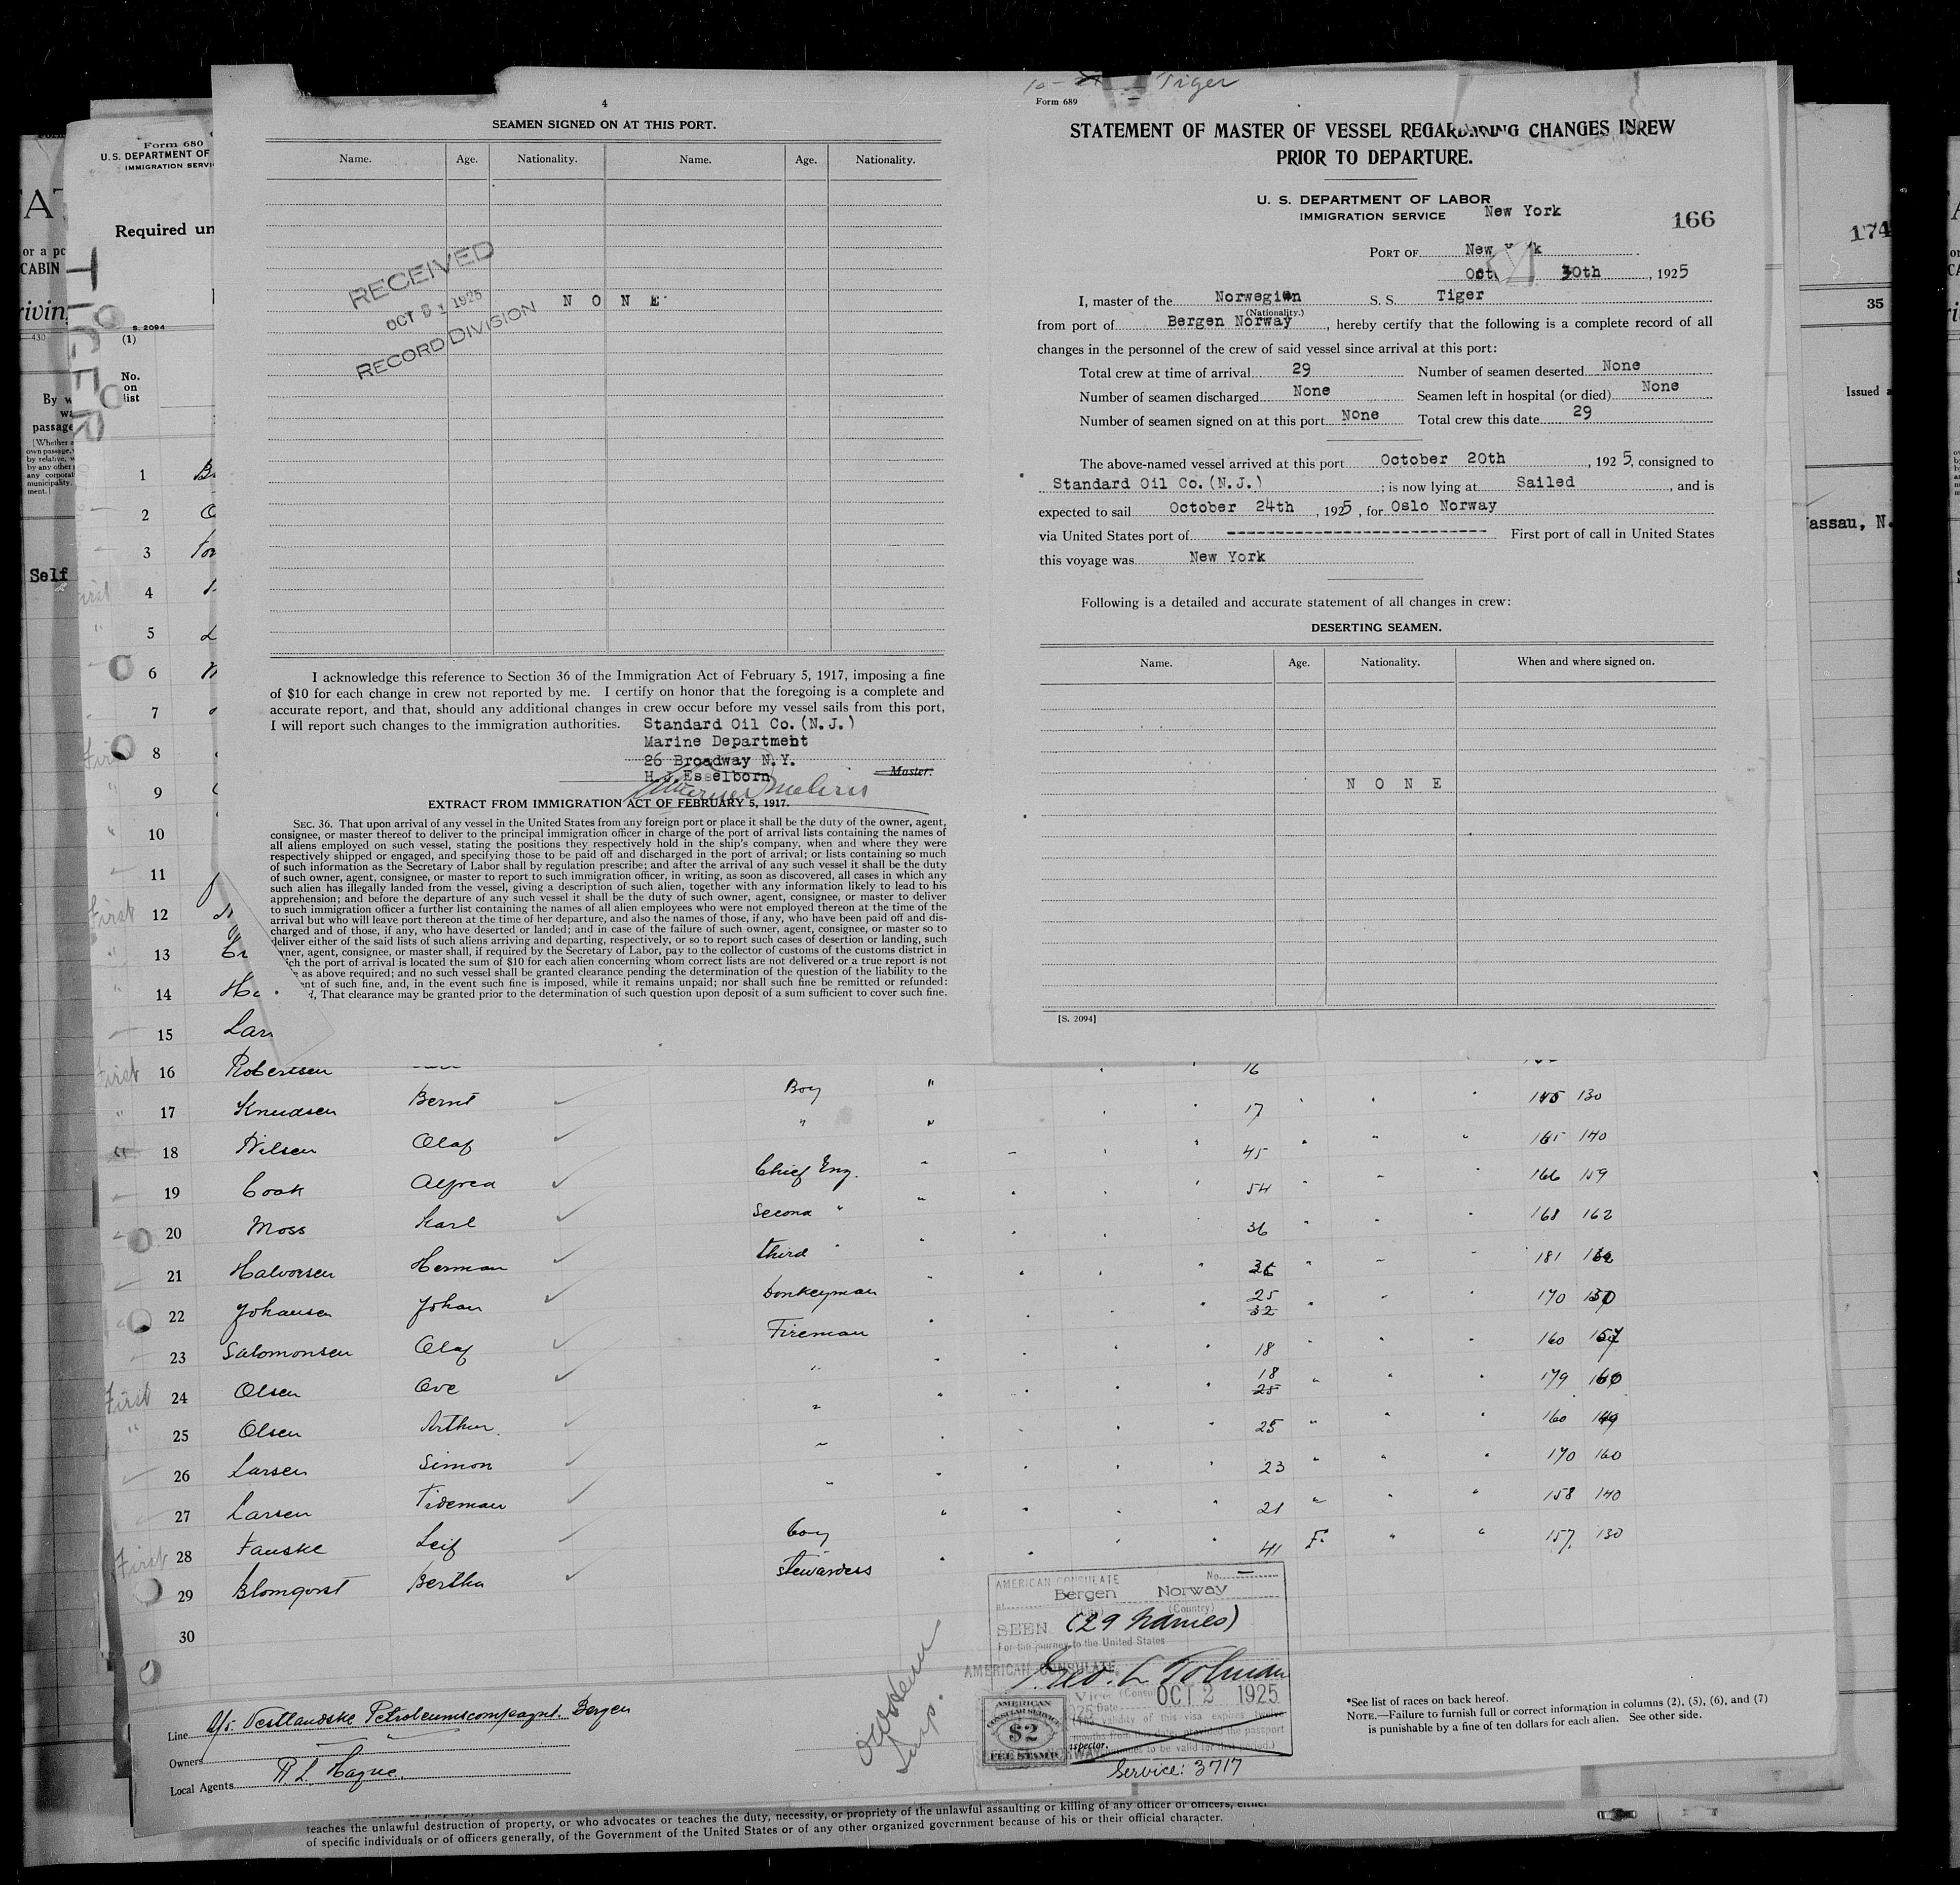 10-24 — Tiger
4
SEAMEN SIGNED ON AT THIS PORT.
Name. Age. Nationality. Name. Age. Nationality.
RECEIVED
OCT 31 1925
RECORD DIVISION
N O N E
I acknowledge this reference to Section 36 of the Immigration Act of February 5, 1917, imposing a fine
of $10 for each change in crew not reported by me. I certify on honor that the foregoing is a complete and
accurate report, and that, should any additional changes in crew occur before my vessel sails from this port,
I will report such changes to the immigration authorities. Standard Oil Co.(N.J.)
Marine Department
26 Broadway N.Y.
H.J.Esselborn Master.
EXTRACT FROM IMMIGRATION ACT OF FEBRUARY 5, 1917.
SEC. 36. That upon arrival of any vessel in the United States from any foreign port or place it shall be the duty of the owner, agent,
consignee, or master thereof to deliver to the principal immigration officer in charge of the port of arrival lists containing the names of
all aliens employed on such vessel, stating the positions they respectively hold in the ship's company, when and where they were
respectively shipped or engaged, and specifying those to be paid off and discharged in the port of arrival; or lists containing so much
of such information as the Secretary of Labor shall by regulation prescribe; and after the arrival of any such vessel it shall be the duty
of such owner, agent, consignee, or master to report to such immigration officer, in writing, as soon as discovered, all cases in which any
such alien has illegally landed from the vessel, giving a description of such alien, together with any information likely to lead to his
apprehension; and before the departure of any such vessel it shall be the duty of such owner, agent, consignee, or master to deliver
to such immigration officer a further list containing the names of all alien employees who were not employed thereon at the time of the
arrival but who will leave port thereon at the time of her departure, and also the names of those, if any, who have been paid off and dis-
charged and of those, if any, who have deserted or landed; and in case of the failure of such owner, agent, consignee, or master so to
deliver either of the said lists of such aliens arriving and departing, respectively, or so to report such cases of desertion or landing, such
wner, agent, consignee, or master shall, if required by the Secretary of Labor, pay to the collector of customs of the customs district in
ich the port of arrival is located the sum of $10 for each alien concerning whom correct lists are not delivered or a true report is not
e as above required; and no such vessel shall be granted clearance pending the determination of the question of the liability to the
ent of such fine, and, in the event such fine is imposed, while it remains unpaid; nor shall such fine be remitted or refunded:
d, That clearance may be granted prior to the determination of such question upon deposit of a sum sufficient to cover such fine.
Form 689
STATEMENT OF MASTER OF VESSEL REGARDING CHANGES IN CREW
PRIOR TO DEPARTURE.
U. S. DEPARTMENT OF LABOR
IMMIGRATION SERVICE New York
166
PORT OF New York
Oct 30th, 1925
I, master of the Norwegian S. S. Tiger
(Nationality.)
from port of Bergen Norway, hereby certify that the following is a complete record of all
changes in the personnel of the crew of said vessel since arrival at this port:
Total crew at time of arrival 29 Number of seamen deserted None
Number of seamen discharged None Seamen left in hospital (or died) None
Number of seamen signed on at this port None Total crew this date 29
The above-named vessel arrived at this port October 20th, 1925, consigned to
Standard Oil Co.(N.J.); is now lying at Sailed, and is
expected to sail October 24th, 1925, for Oslo Norway
via United States port of ---------- First port of call in United States
this voyage was New York
Following is a detailed and accurate statement of all changes in crew:
DESERTING SEAMEN.
Name. Age. Nationality. When and where signed on.
N O N E
[S. 2094]
Form 680
U.S. DEPARTMENT OF
IMMIGRATION SERVI
Required un
TIGER
S. 2094
(1)
No.
on
list
1
2
3
First 4
5
6
7
First 8
9
10
11
First 12
13
14
15 Lar
First 16 Robertsen 16
17 Knudsen Bernt Boy " 17 145 130
18 Nilsen Olaf " " 45 165 140
19 Cook Alfred Chief Eng. " 54 166 159
20 Moss Karl Second " " 36 168 162
21 Halvorsen Herman third " " 181
22 Johansen Johan Donkeyman " 25 32 170
23 Salomonsen Olaf Fireman 18 160 157
First 24 Olsen Ove " 18 25 179 160
25 Olsen Arthur " 25 160 149
26 Larsen Simon " 23 170 160
27 Larsen Tideman " 21 158 140
First 28 Fauske Leif boy 41 F. 157 130
29 Blomqvist Bertha Stewardess
30
AMERICAN CONSULATE No. —
at Bergen Norway
(City) (Country)
SEEN (29 Names)
For the journey to the United States
AMERICAN CONSULATE
Geo. L. Tolman
Vice (Consul
Date OCT 2 1925
(The validity of this visa expires twelve
months from this date, provided the passport
continues to be valid for that period.)
AMERICAN
CONSULAR SERVICE
$2
FEE STAMP
Service: 3717
Line A/S. Vestlandske Petroleumscompagni. Bergen
Owners "
Local Agents R L Hague.
*See list of races on back hereof.
NOTE.—Failure to furnish full or correct information in columns (2), (5), (6), and (7)
is punishable by a fine of ten dollars for each alien. See other side.
teaches the unlawful destruction of property, or who advocates or teaches the duty, necessity, or propriety of the unlawful assaulting or killing of any officer or officers, either
of specific individuals or of officers generally, of the Government of the United States or of any other organized government because of his or their official character.
or a po
CABIN
riving
430
By w
passage
Self
174
35
Issued a
assau, N.